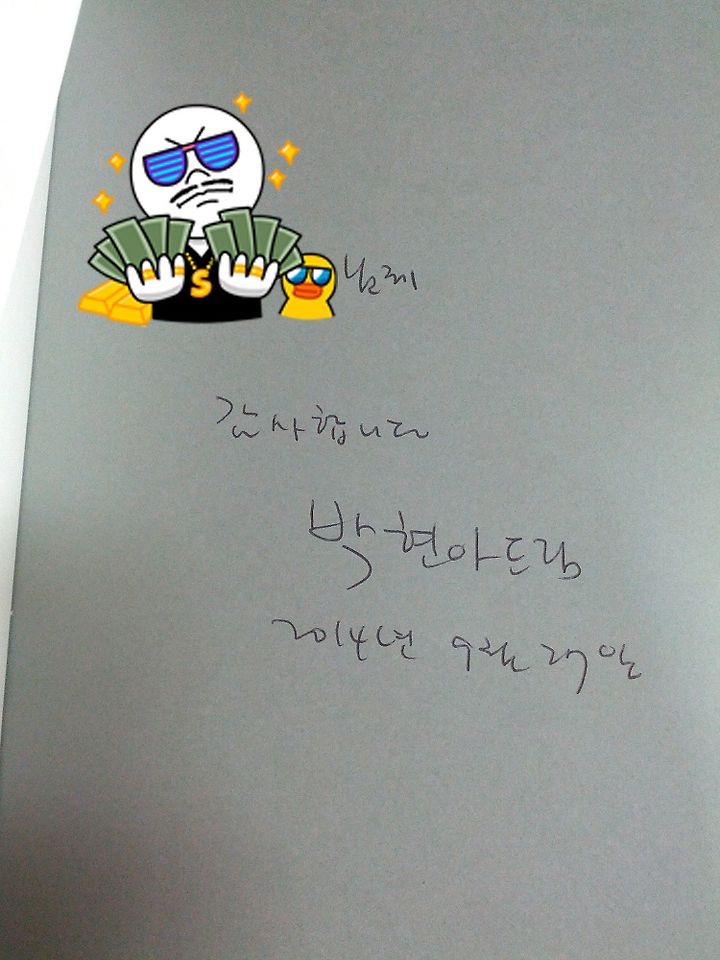 님께
감사합니다
박현아드림
2014년 9월 27일